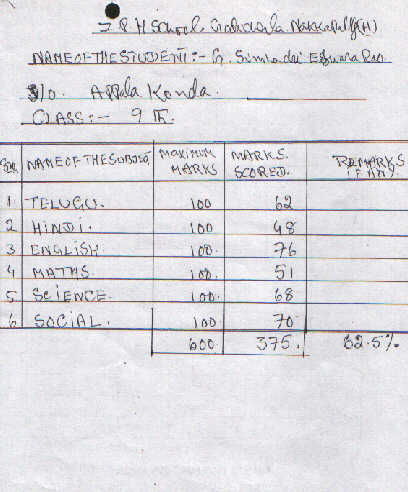 Z P H School,
NAME OF THE STUDENT :- G. Simhadri Eswara Rao
S/o. Appla Konda.
CLASS :- 9 th.
NAME OF THE SUBJECT MAXIMUM MARKS MARKS SCORED. REMARKS IF ANY
1 TELUGU. 100 62
2 HINDI. 100 48
3 ENGLISH. 100. 76
4 MATHS 100. 51
5 SCIENCE. 100. 68
6 SOCIAL. 100. 70
600 375. 62.5%